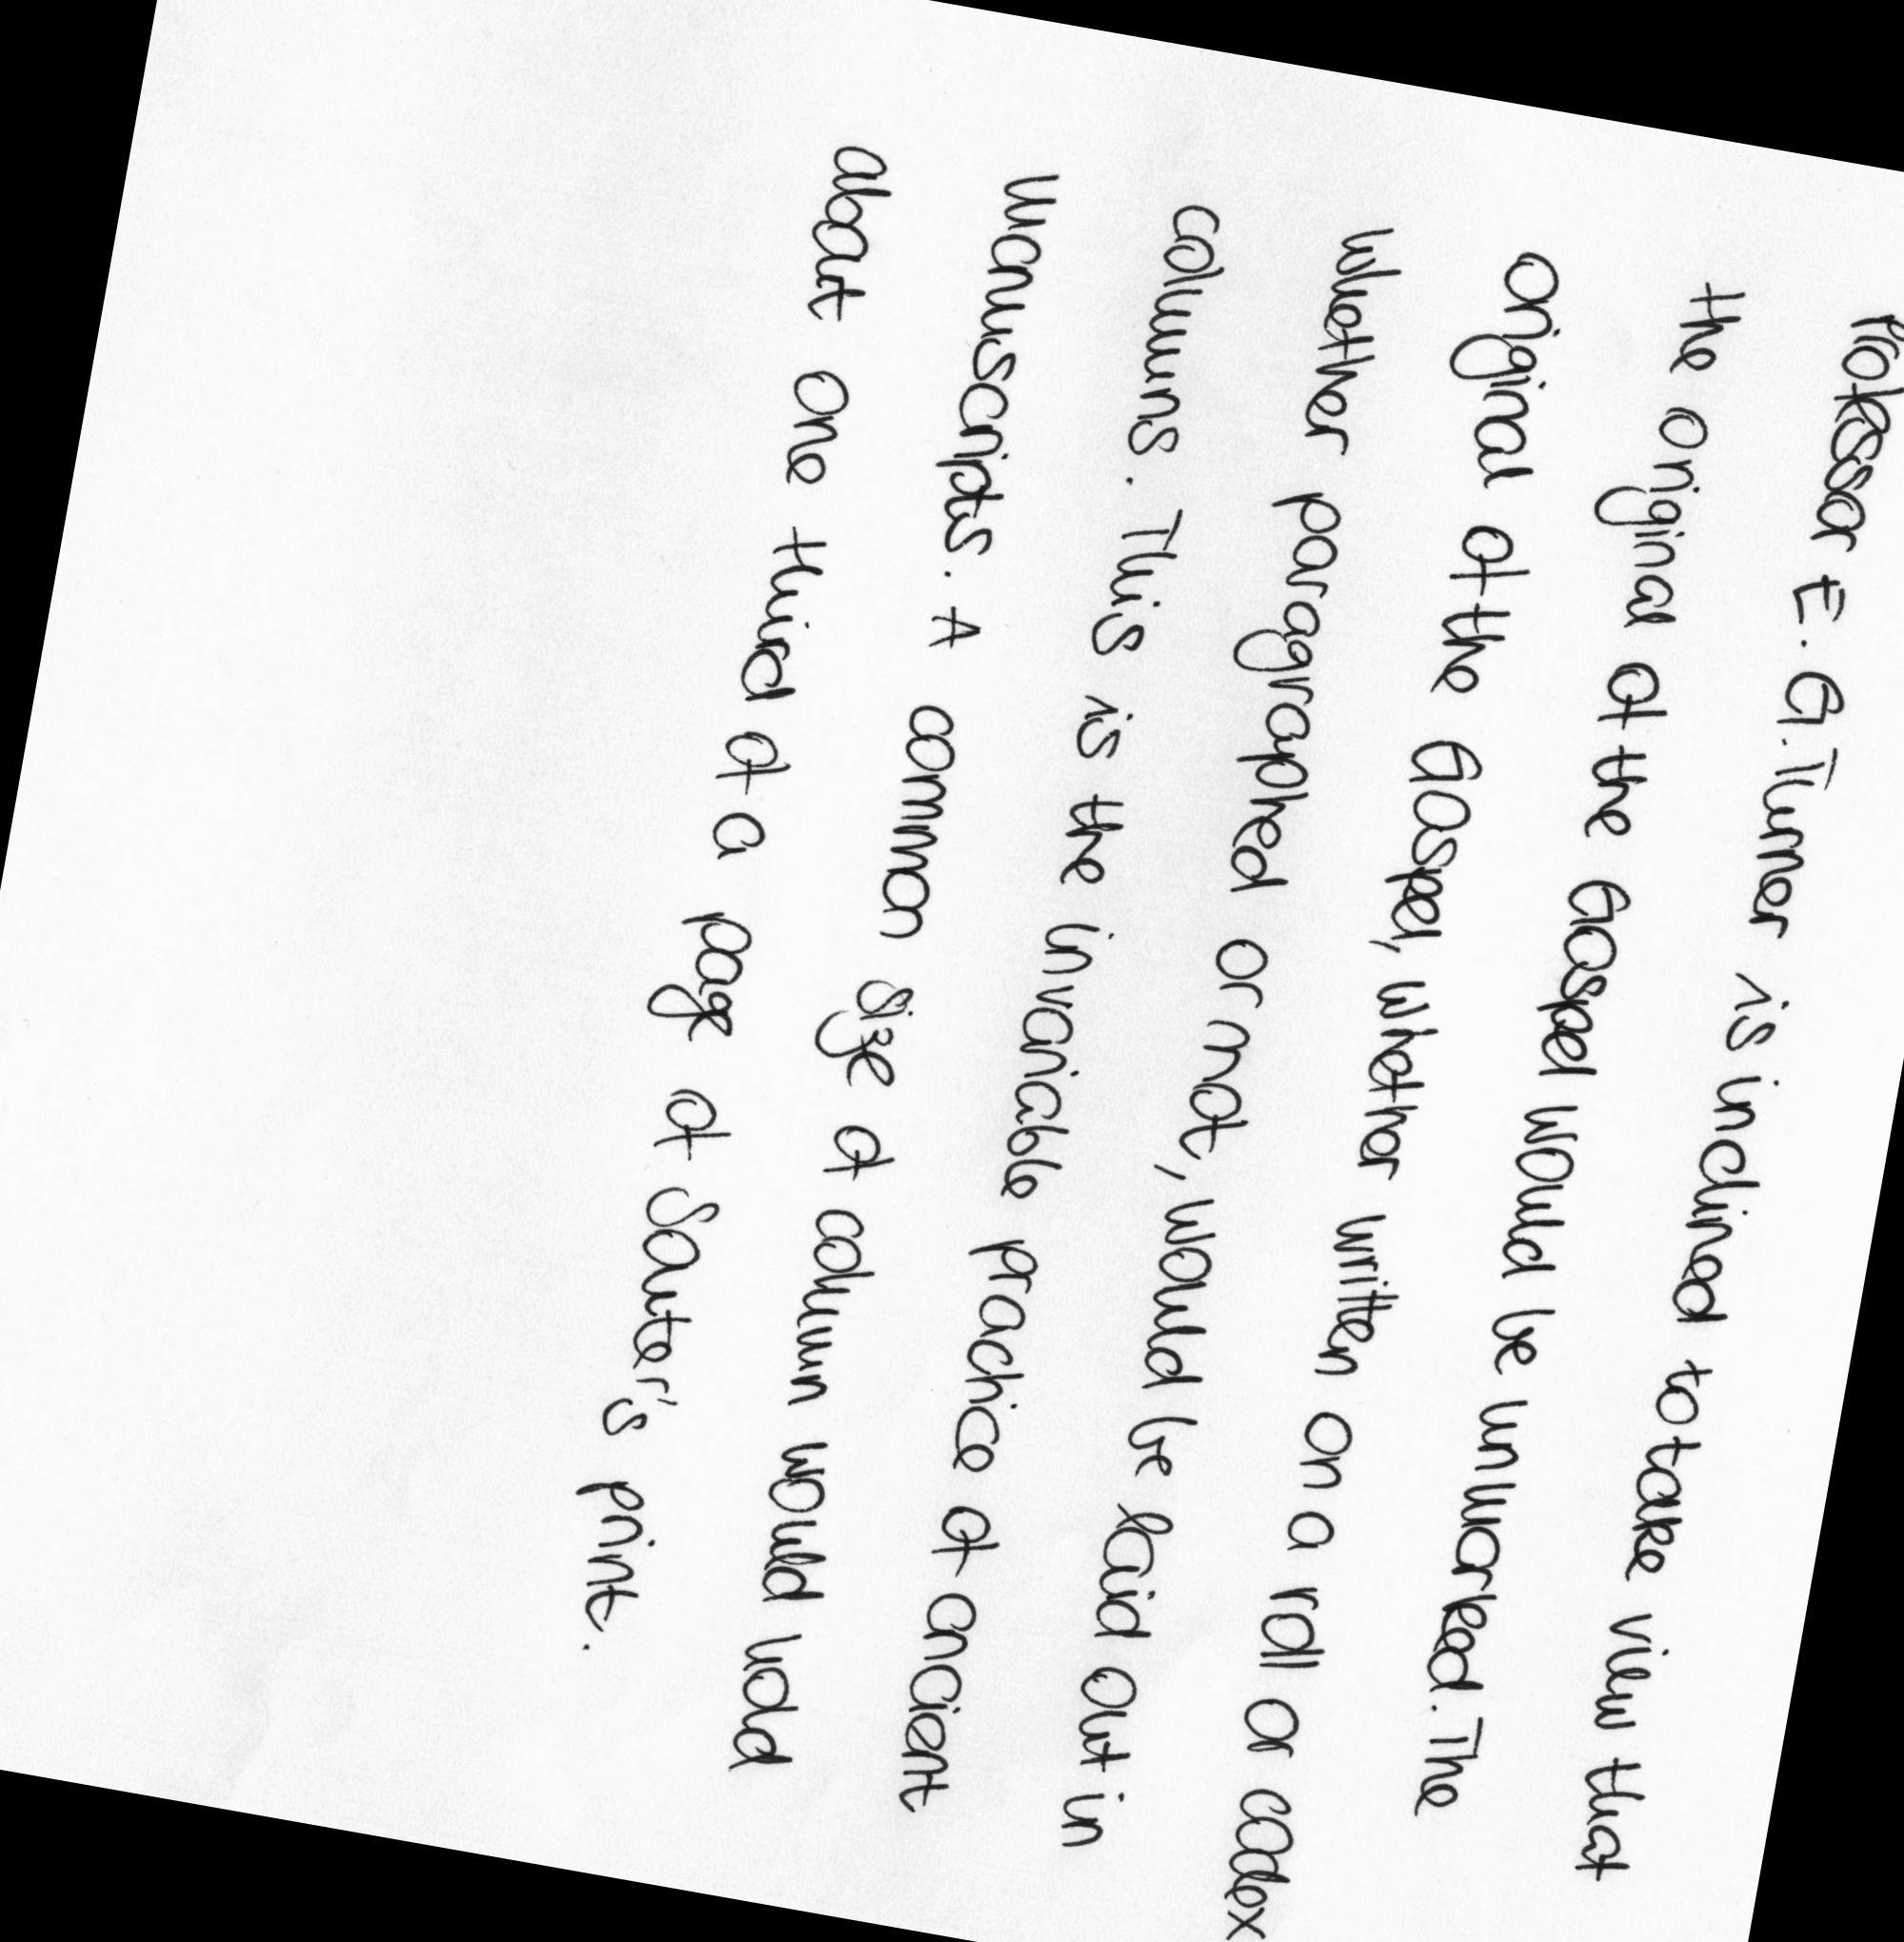 Professor E. G. Turner is inclined to take view that
the original of the Gospel would be unmarked. The
original of the Gospel, whether written on a roll or codex
whether paragraphed or not, would be laid out in
columns. This is the invariable practice of ancient
manuscripts. A common size of column would hold
about one third of a page of Souter's print.